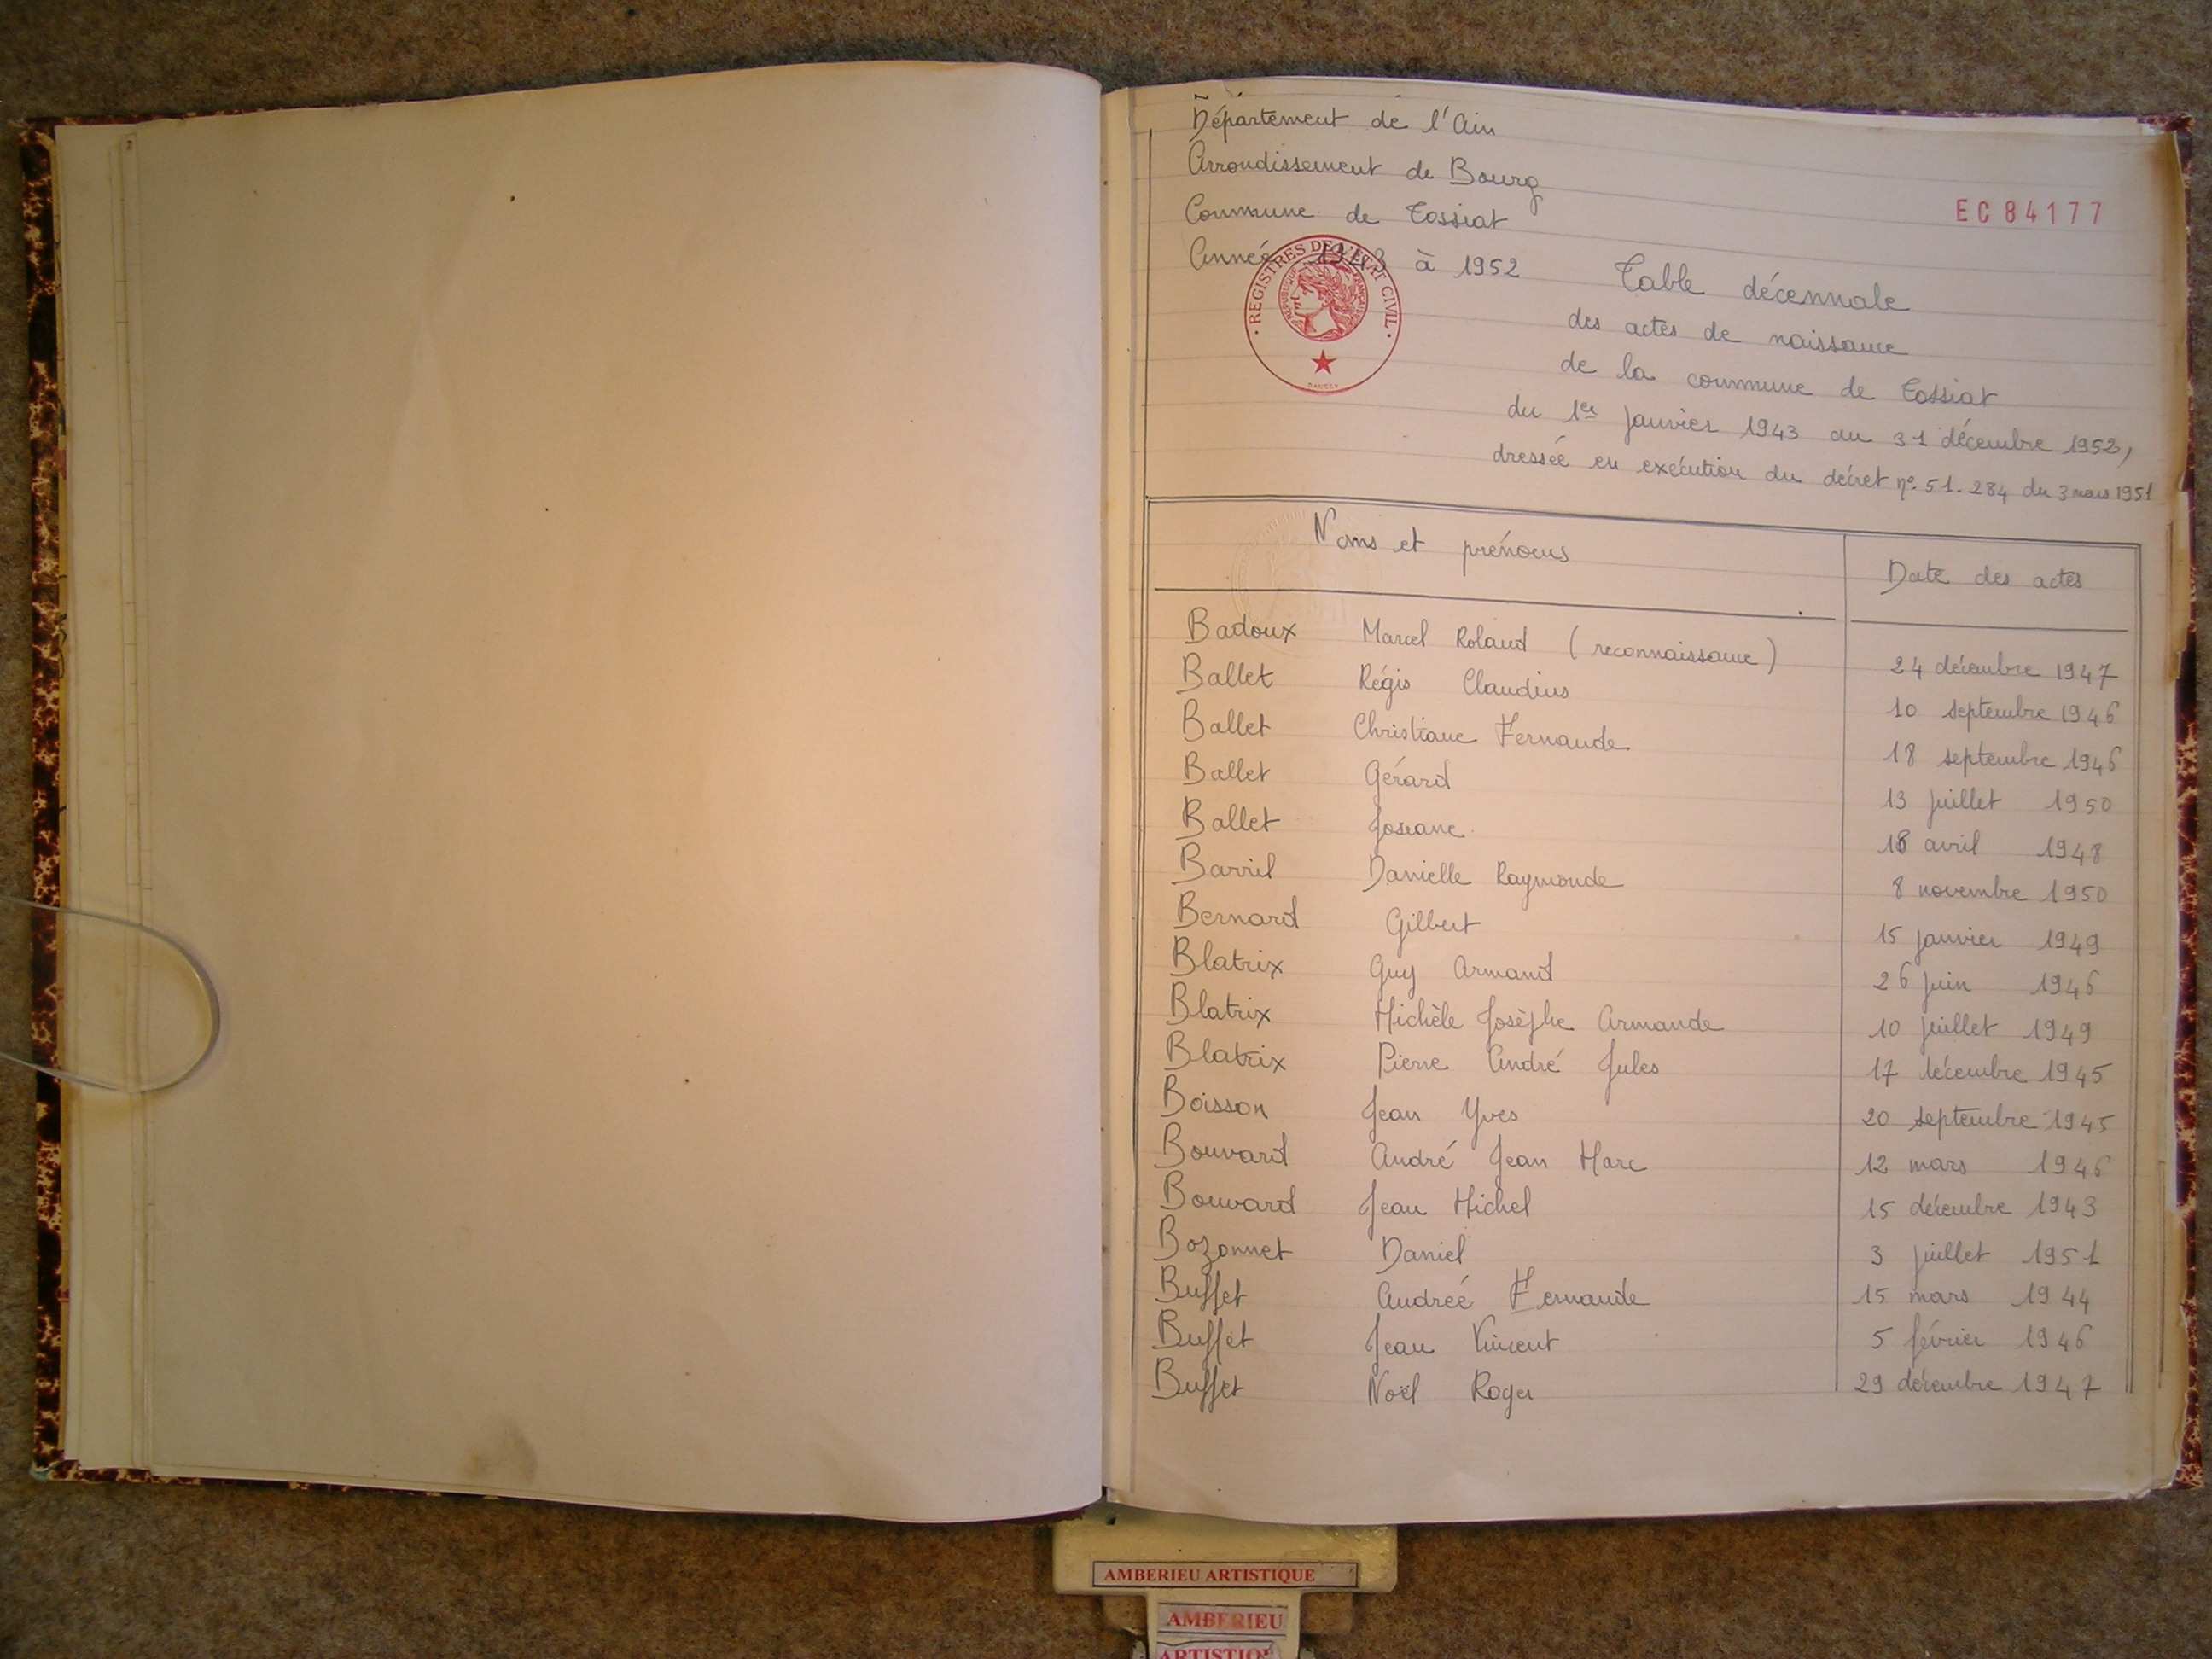 Département de l'Ain
Arrondissement de Bourg
Commune de Tossiat
EC 84177
Année 1943 à 1952
REGISTRES DE L'ÉTAT CIVIL
Table décennale
des actes de naissance
de la commune de Tossiat
du 1er janvier 1943 au 31 décembre 1952,
dressée en exécution du décret n° 51.284 du 3 mars 1951
Noms et prénoms Date des actes
Badoux Marcel Roland (reconnaissance) 24 décembre 1947
Ballet Régis Claudius 10 septembre 1946
Ballet Christiane Fernande 18 septembre 1946
Ballet Gérard 13 juillet 1950
Ballet Josiane 18 avril 1948
Barril Danielle Raymonde 8 novembre 1950
Bernard Gilbert 15 janvier 1949
Blatrix Guy Armand 26 juin 1946
Blatrix Michèle Josèphe Armande 10 juillet 1949
Blatrix Pierre André Jules 17 décembre 1945
Boisson Jean Yves 20 septembre 1945
Bouvard André Jean Marc 12 mars 1946
Bouvard Jean Michel 15 décembre 1943
Bozonnet Daniel 3 juillet 1951
Buffet Andrée Fernande 15 mars 1944
Buffet Jean Vincent 5 février 1946
Buffet Noël Roger 29 décembre 1947
AMBERIEU ARTISTIQUE
AMBERIEU